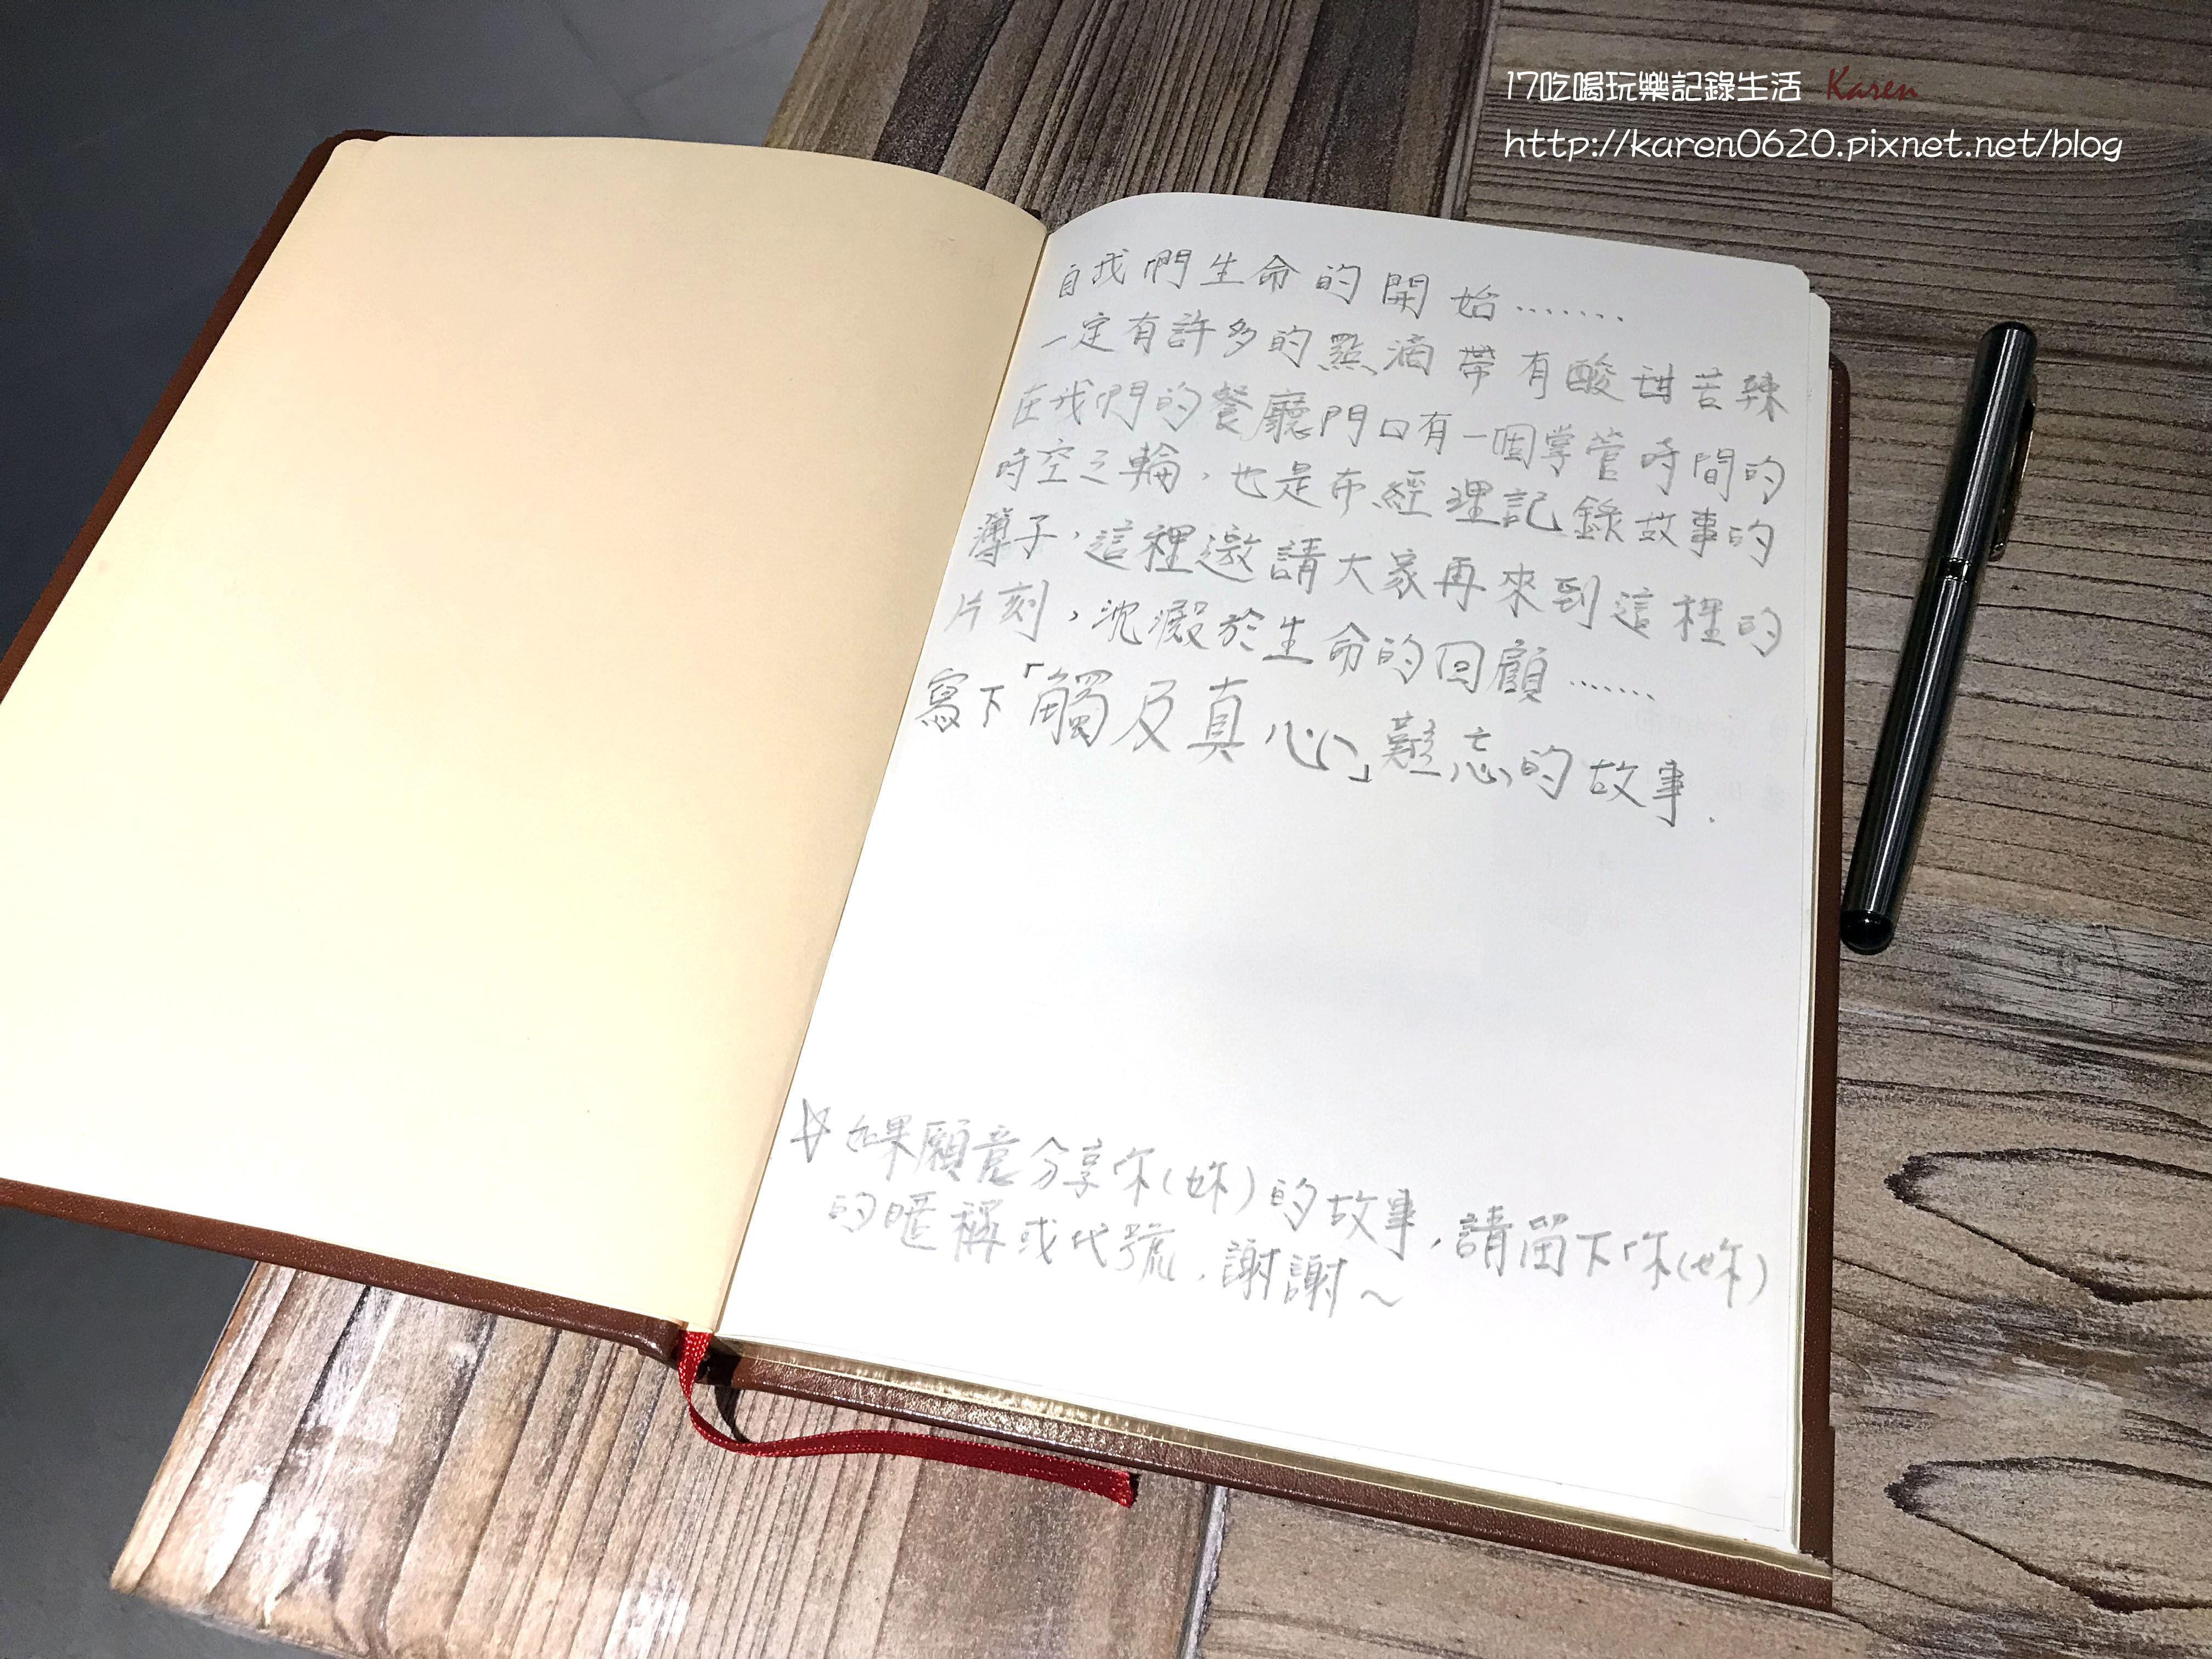 17吃喝玩樂記錄生活 Karen
http://karen0620.pixnet.net/blog
自我們生命的開始.......
一定有許多的點滴帶有酸甜苦辣
在我們的餐廳門口有一個掌管時間的
時空之輪,也是布經理記錄故事的
薄子,這裡邀請大家再來到這裡的
片刻,沈澱於生命的回顧.......
寫下「觸及真心」難忘的故事.
☆如果願意分享你(妳)的故事,請留下你(妳)
的暱稱或代號,謝謝~